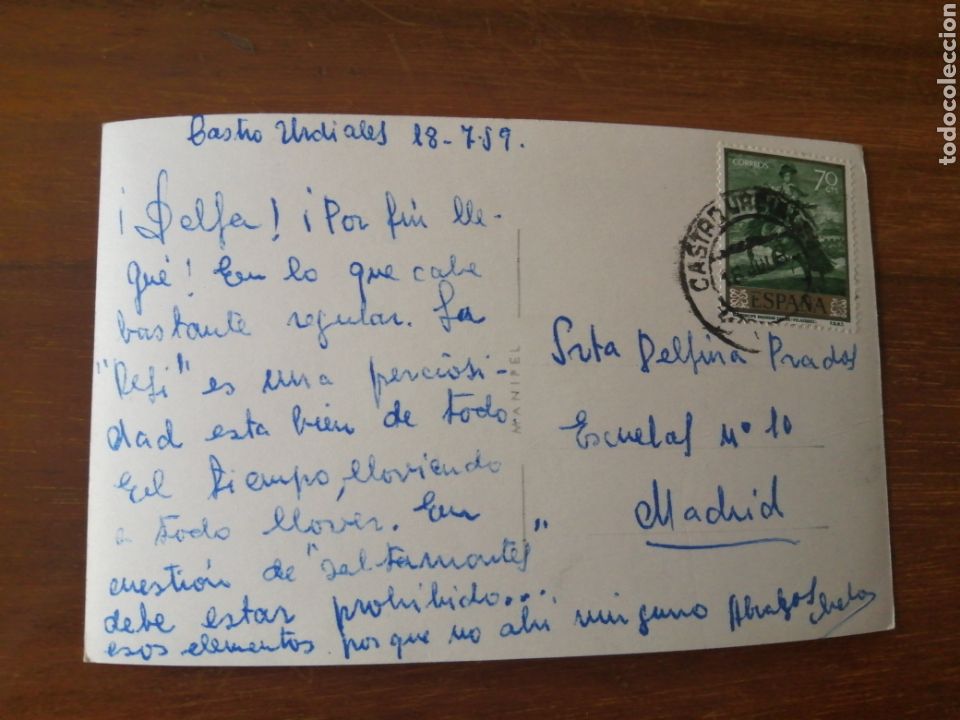 Castro Urdiales 18-7-59.
¡Delfa! ¡Por fin lle-
gué! En lo que cabe
bastante regular. La
"Resi" es una perciosi-
dad esta bien de todo
El tiempo, lloviendo
a todo llover. En
cuestión de "saltamontes"
debe estar prohibido...
esos elementos porque no ahi ninguno Abrazos
CORREOS 70 CTS
CASTRO URDIALES
ESPAÑA
MANIPEL
Srta Delfina Prados
Escuelas nº 10
Madrid
todocoleccion